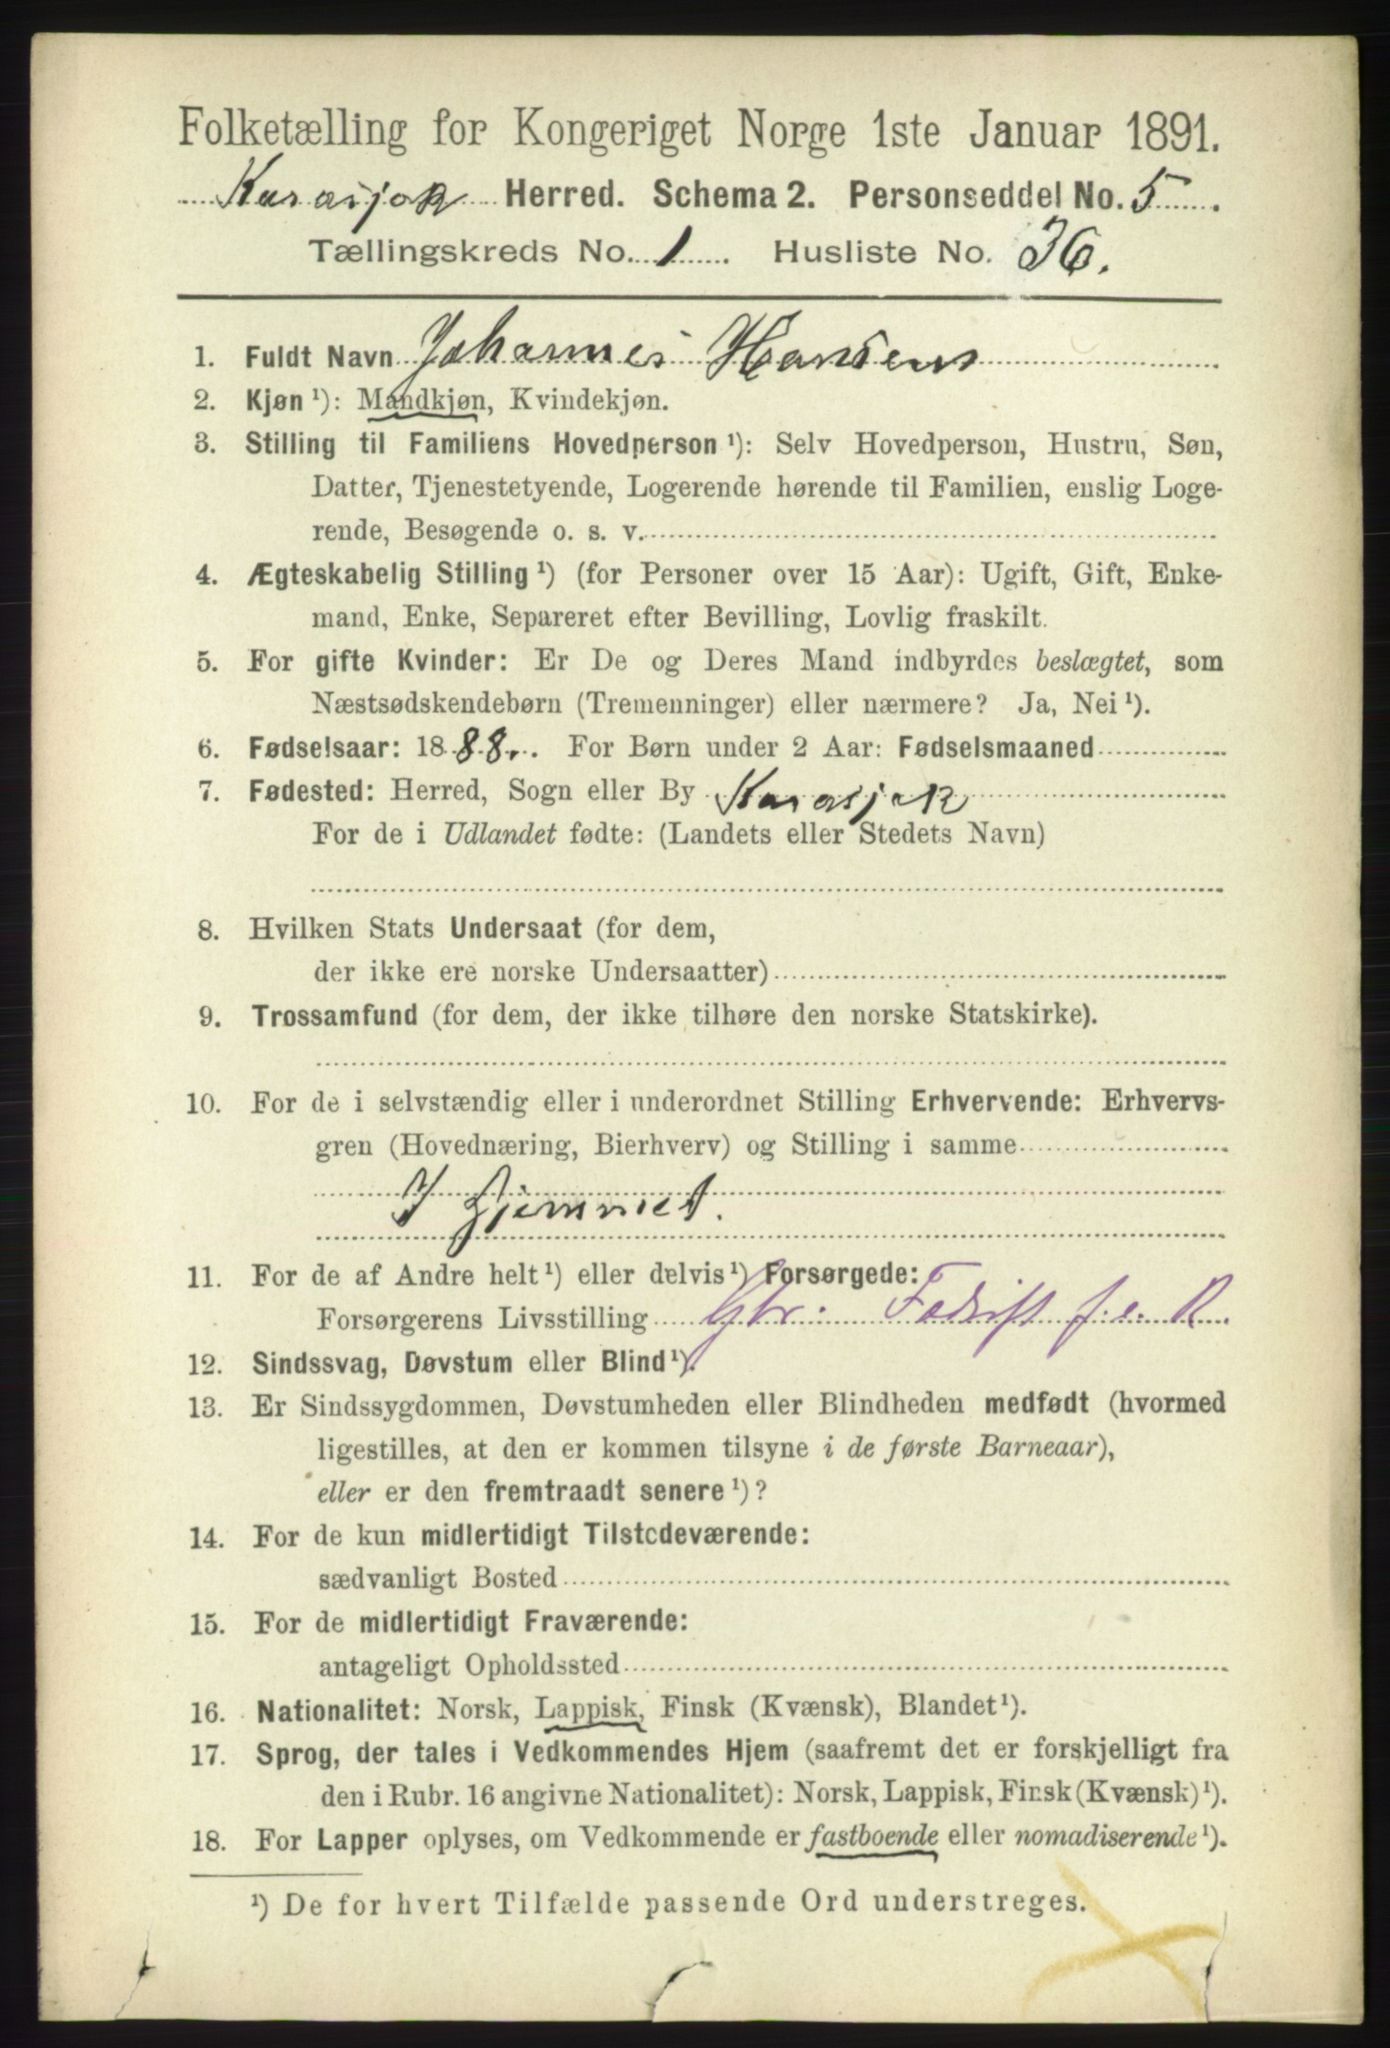 Folketælling for Kongeriget Norge 1ste Januar 1891.
Karasjok Herred. Schema 2. Personseddel No. 5
Tællingskreds No. 1. Husliste No. 36.
1. Fuldt Navn Johannes Hansen
2. Kjøn ¹): Mandkjøn, Kvindekjøn.
3. Stilling til Familiens Hovedperson ¹): Selv Hovedperson, Hustru, Søn,
Datter, Tjenestetyende, Logerende hørende til Familien, enslig Loge-
rende, Besøgende o. s. v.
4. Ægteskabelig Stilling ¹) (for Personer over 15 Aar): Ugift, Gift, Enke-
mand, Enke, Separeret efter Bevilling, Lovlig fraskilt.
5. For gifte Kvinder: Er De og Deres Mand indbyrdes beslægtet, som
Næstsødskendebørn (Tremenninger) eller nærmere? Ja, Nei ¹).
6. Fødselsaar: 1888. For Børn under 2 Aar: Fødselsmaaned
7. Fødested: Herred, Sogn eller By Karasjok
For de i Udlandet fødte: (Landets eller Stedets Navn)
8. Hvilken Stats Undersaat (for dem,
der ikke ere norske Undersaatter)
9. Trossamfund (for dem, der ikke tilhøre den norske Statskirke).
10. For de i selvstændig eller i underordnet Stilling Erhvervende: Erhvervs-
gren (Hovednæring, Bierhverv) og Stilling i samme
I Hjemmet.
11. For de af Andre helt ¹) eller delvis ¹) Forsørgede:
Forsørgerens Livsstilling Gbr. f. e. R
12. Sindssvag, Døvstum eller Blind ¹).
13. Er Sindssygdommen, Døvstumheden eller Blindheden medfødt (hvormed
ligestilles, at den er kommen tilsyne i de første Barneaar),
eller er den fremtraadt senere ¹)?
14. For de kun midlertidigt Tilstedeværende:
sædvanligt Bosted
15. For de midlertidigt Fraværende:
antageligt Opholdssted
16. Nationalitet: Norsk, Lappisk, Finsk (Kvænsk), Blandet ¹).
17. Sprog, der tales i Vedkommendes Hjem (saafremt det er forskjelligt fra
den i Rubr. 16 angivne Nationalitet): Norsk, Lappisk, Finsk (Kvænsk) ¹).
18. For Lapper oplyses, om Vedkommende er fastboende eller nomadiserende ¹).
¹) De for hvert Tilfælde passende Ord understreges.